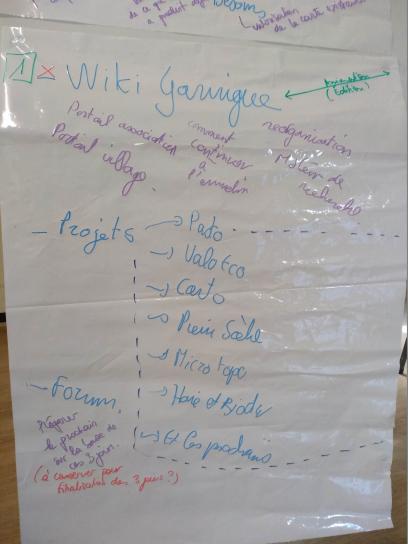 de ce que
a produit
besoins
valorisation
de la carte
1 x Wiki Garrigue
Animation
(Edition)
Portail association
Portail village.
comment
continuer
à
l'
réorganisation
Moteur de
recherche
- Projets
→ Pasto
→ Valoeco
→ Carto
→ Pierre Sèche
→ Microtopo
→ Haie et
→ Et les prochains
- Forum.
Préparer
le prochain
sur la base de
ces 3 jours.
(à conserver pour
finalisation des 3 jours ?)